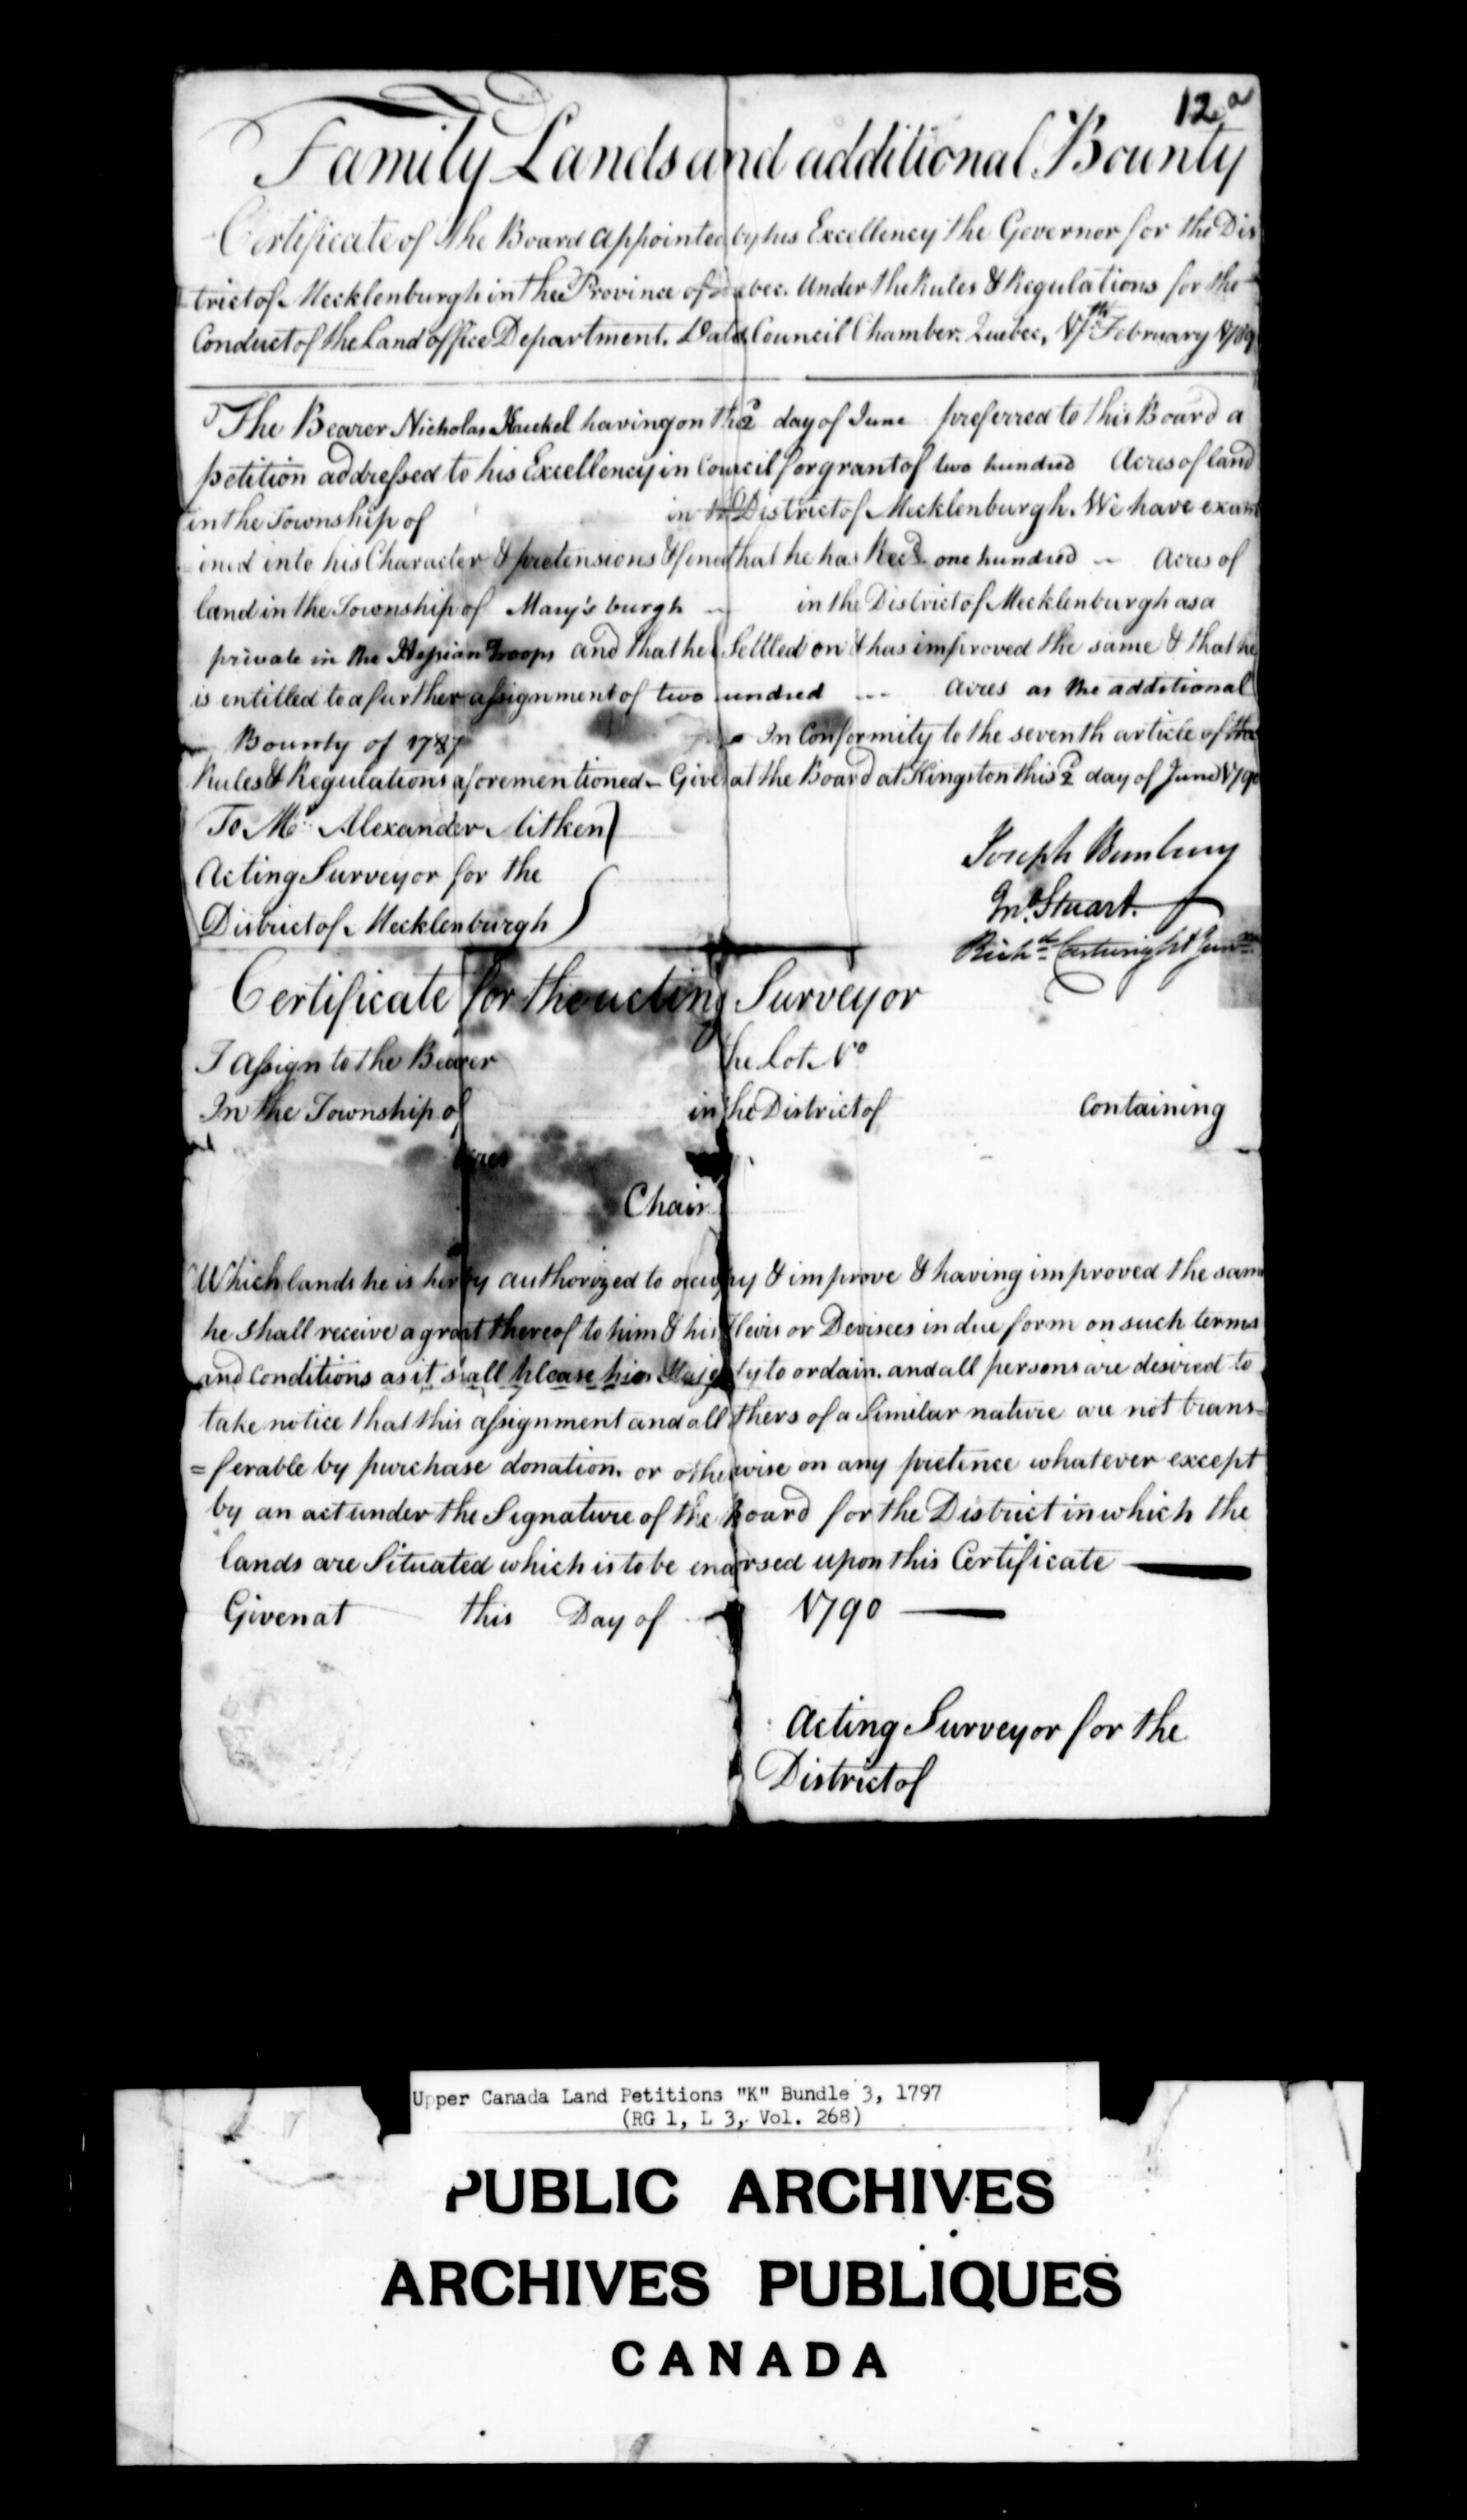 12a
Family Lands and additional Bounty
Certificate of the Board appointed by his Excellency the Governor for the Dis
trict of Mecklenburgh in thee Province of Quebec. Under the Rules & Regulations for the
Conduct of the Land office Department. Dated Council Chamber. Quebec, 17th February 1789
The Bearer Nicholas Kaekel having on the 2 day of June preferred to this Board a
petition addressed to his Excellency in Council for grant of two hundred Acres of land
in the Township of in the District of Mecklenburgh. We have exam
ined into his Character & pretensions & find that he has Recd one hundred Acres of
land in the Township of Mary's burgh in the District of Mecklenburgh as a
private in the Hessian Troops and that he Settled on & has improved the same & that he
is entitled to a further assignment of two hundred Acres as the additional
Bounty of 1787 In Conformity to the seventh article of the
Rules & Regulations aforementioned - Given at the Board at Kingston this 2 day of June 1790
To Mr. Alexander Aitken
Acting Surveyor for the
District of Mecklenburgh
Joseph Bunbury
Jno. Stuart.
Richd. Cartwright Junr.
Certificate for the acting Surveyor
I Assign to the Bearer the Lot No
In the Township of in the District of Containing
Acres
Chain
Which lands he is herby authorized to occupy & improve & having improved the same
he shall receive a grant thereof to him & his Heirs or Devisees in due form on such terms
and Conditions as it shall please his Majesty to ordain. and all persons are desired to
take notice that this assignment and all others of a Similar nature are not trans=
=ferable by purchase donation. or otherwise on any pretence whatever except
by an act under the Signature of the Board for the District in which the
lands are Situated which is to be endorsed upon this Certificate
Given at this Day of 1790
Acting Surveyor for the
District of
Upper Canada Land Petitions "K" Bundle 3, 1797
(RG 1, L 3, Vol. 268)
PUBLIC ARCHIVES
ARCHIVES PUBLIQUES
CANADA